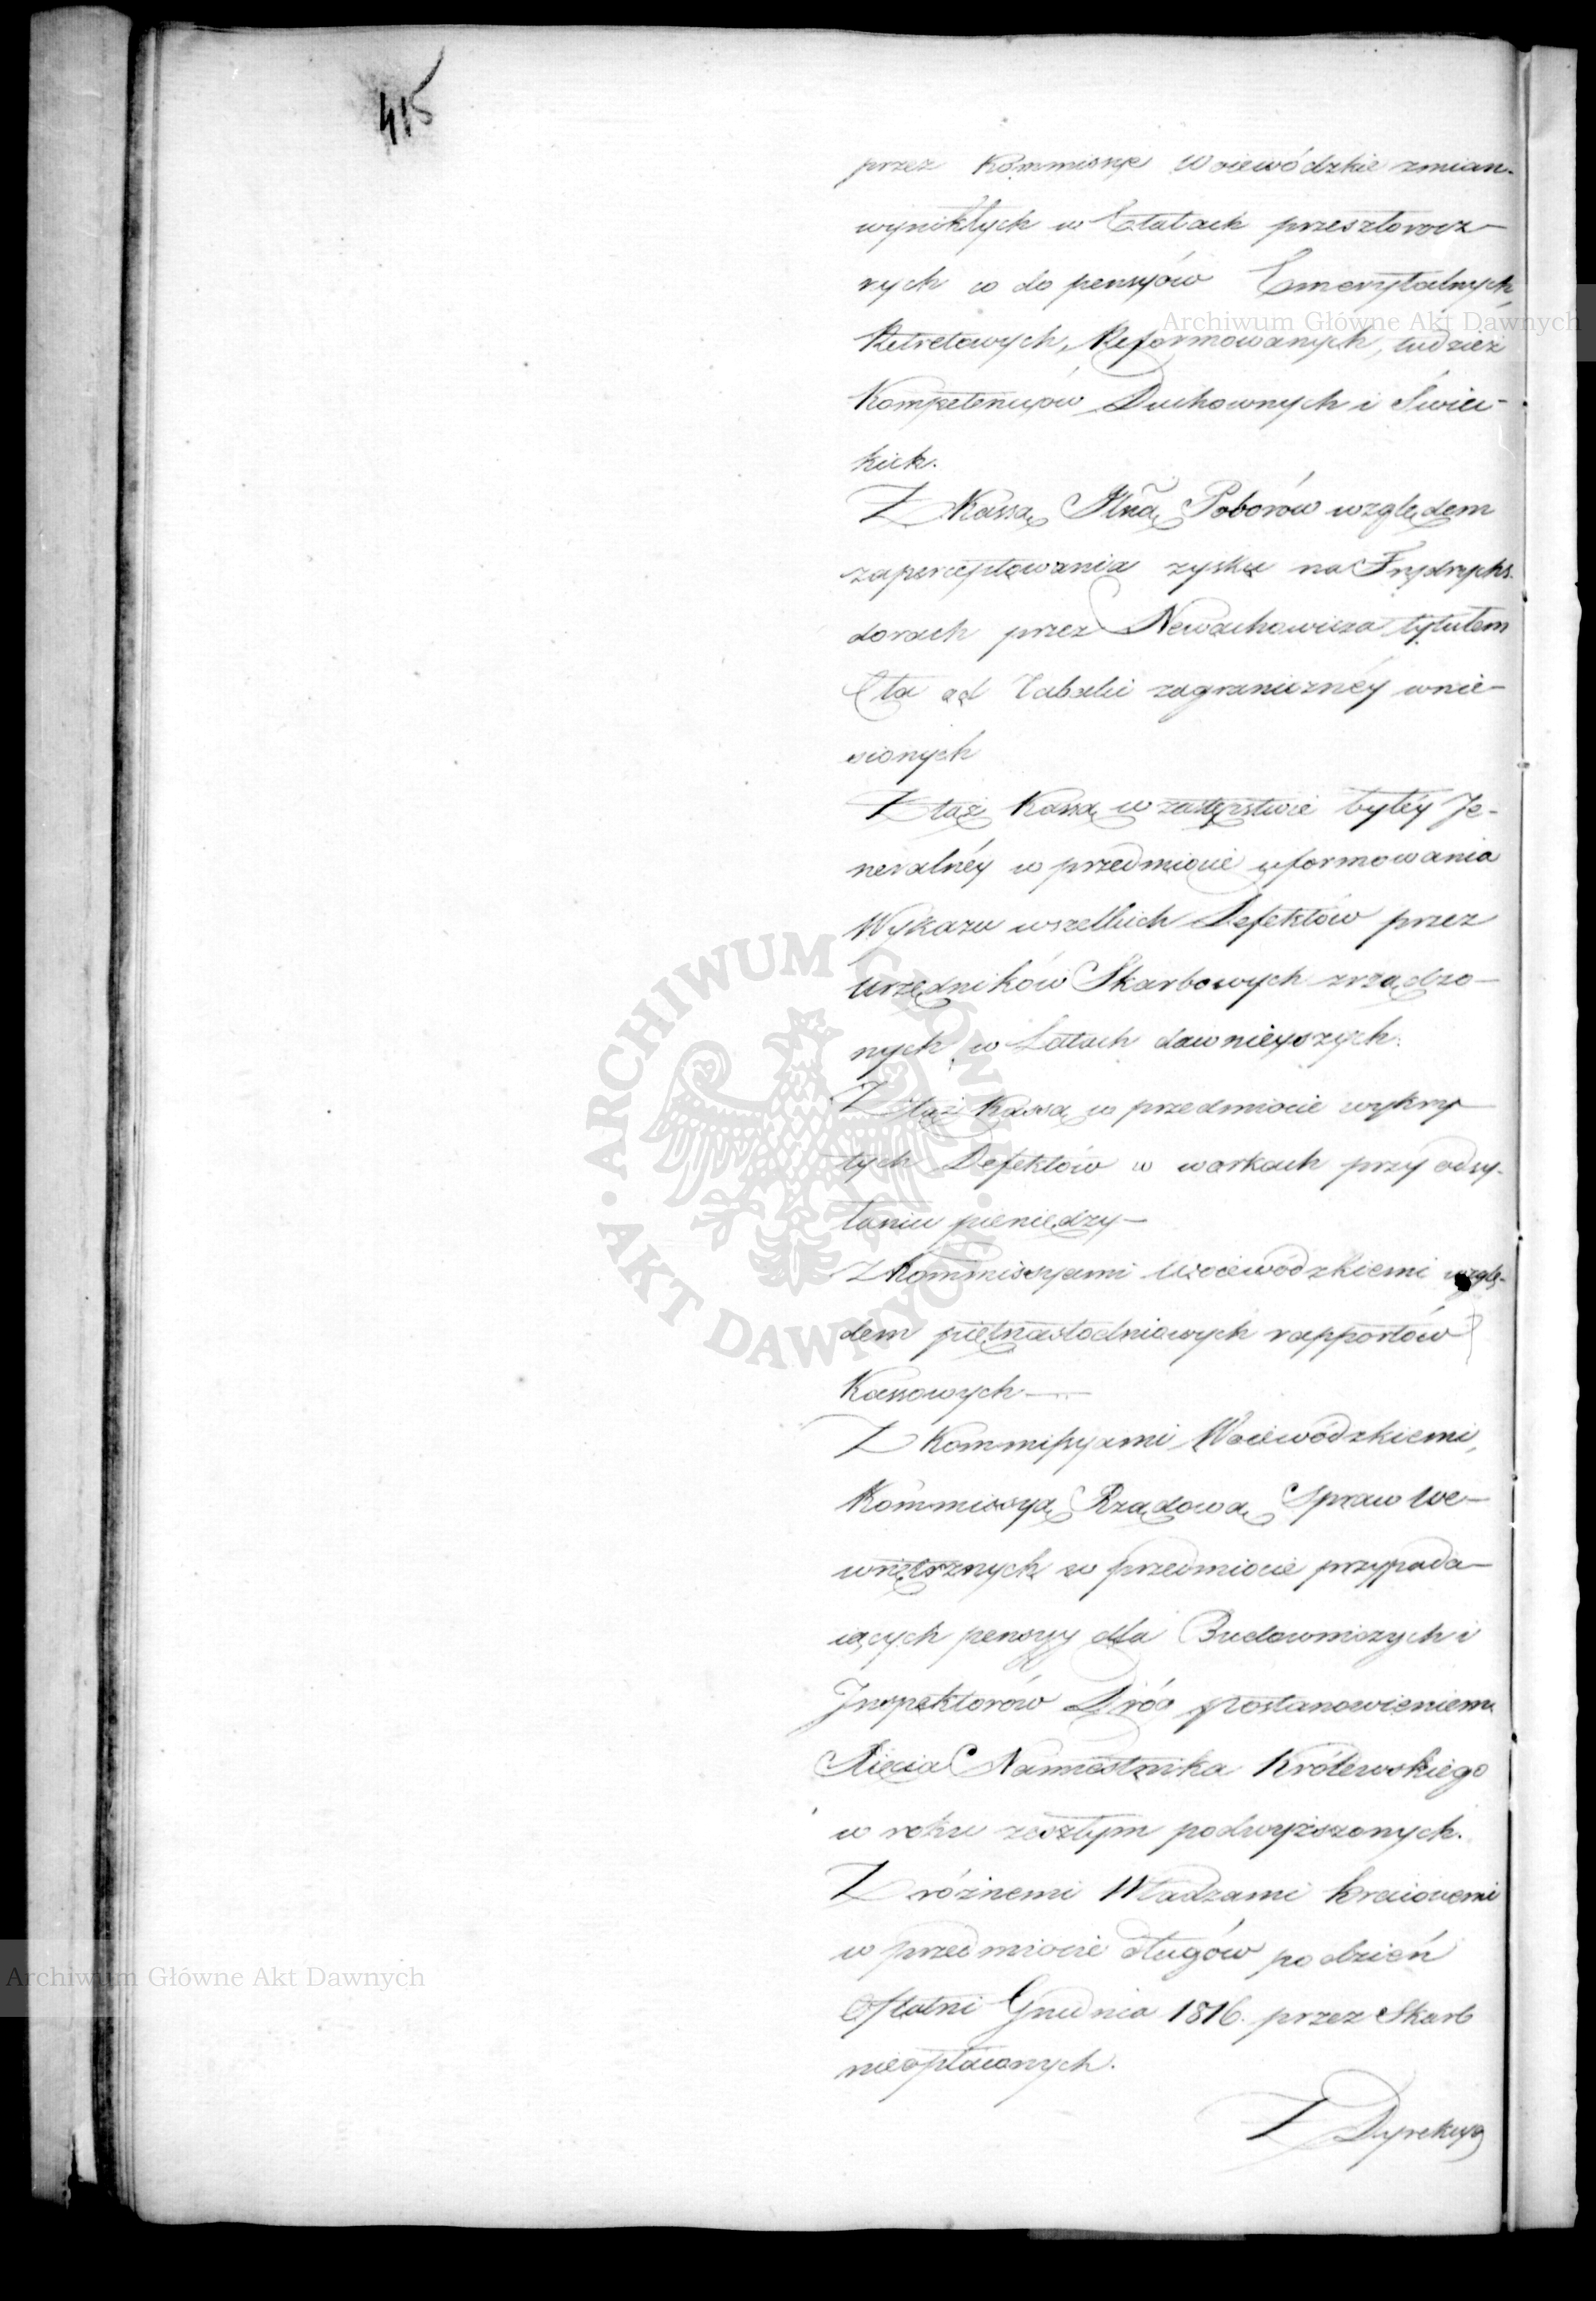 415
przez Kommissye Woiewódzkie zmian
wynikłych w Etatach przeszłorocz-
nych co do pensyów Emerytalnych
Retretowych, Reformowanych, tudzież
Kompetencyów Duchownych i Świec-
kich.
Z Kassą Jlną Poborów względem
zaperceptowania zysku na Frydrychs-
dorach przez Newachowicza tytułem
Cła od Tabaki zagranicznéy wnie-
sionych
Z taż Kassą w zastępstwie byłéy Je-
neralnéy w przedmiocie uformowania
Wykazu wszelkich Defektów przez
Urzędników Skarbowych zrządzo-
nych w Latach dawnieyszych.
Z taż Kassą w przedmiocie wykry-
tych Defektów w workach przy odsy-
łaniu pieniędzy-
Z Kommissyami Woiewódzkiemi wzglę-
dem piętnastodniowych rapportów
Kassowych-
Z Kommissyami Woiewódzkiemi,
Kommissyą Rządową Spraw We-
wnętrznych w przedmiocie przypada-
iących pensyy dla Budowniczych i
Jnspektorów Dróg postanowieniem
Xięcia Namiestnika Królewskiego
w roku zeszłym podwyższonych.
Z różnemi Władzami kraiowemi
w przedmiocie długów po dzień
Ostatni Grudnia 1816. przez Skarb
nieopłaconych.
Z Dyrekcyą
Archiwum Główne Akt Dawnych
ARCHIWUM GŁÓWNE · AKT DAWNYCH ·
Archiwum Główne Akt Dawnych